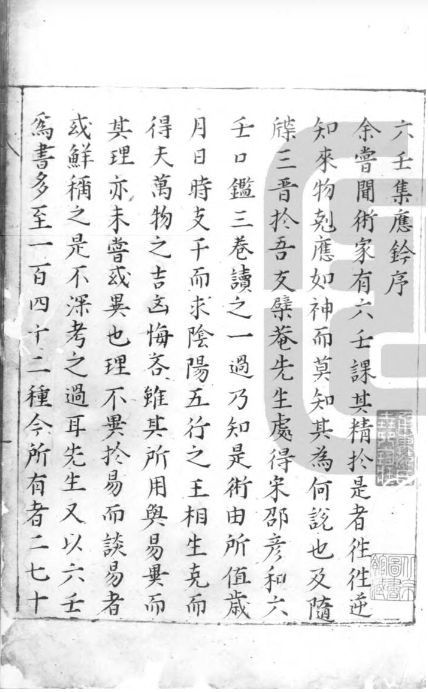 六壬集應鈐序
余嘗聞術家有六壬課其精於是者徃徃逆
知來物剋應如神而莫知其為何說也及隨
牒三晋於吾友檗菴先生處得宋邵彦和六
壬口鑑三卷讀之一過乃知是術由所值歲
月日時支干而求陰陽五行之王相生克而
得夫萬物之吉凶悔吝雖其所用與易異而
其理亦未嘗或異也理不異於易而談易者
或鮮稱之是不深考之過耳先生又以六壬
為書多至一百四十二種今所有者二七十